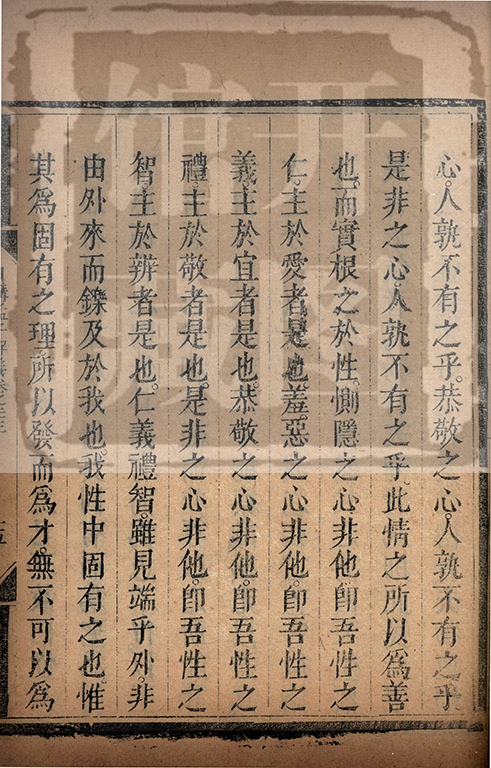 心。人孰不有之乎。恭敬之心。人孰不有之乎
是非之心。人孰不有之乎。此情之所以爲善
也。而實根之於性。惻隱之心非他。卽吾性之
仁。主於愛者是也。羞惡之心非他。卽吾性之
義。主於宜者是也。恭敬之心非他。卽吾性之
禮。主於敬者是也。是非之心非他。卽吾性之
智。主於辨者是也。仁義禮智。雖見端乎外。非
由外來而鑠及於我也。我性中固有之也。惟
其爲固有之理。所以發而爲才。無不可以爲